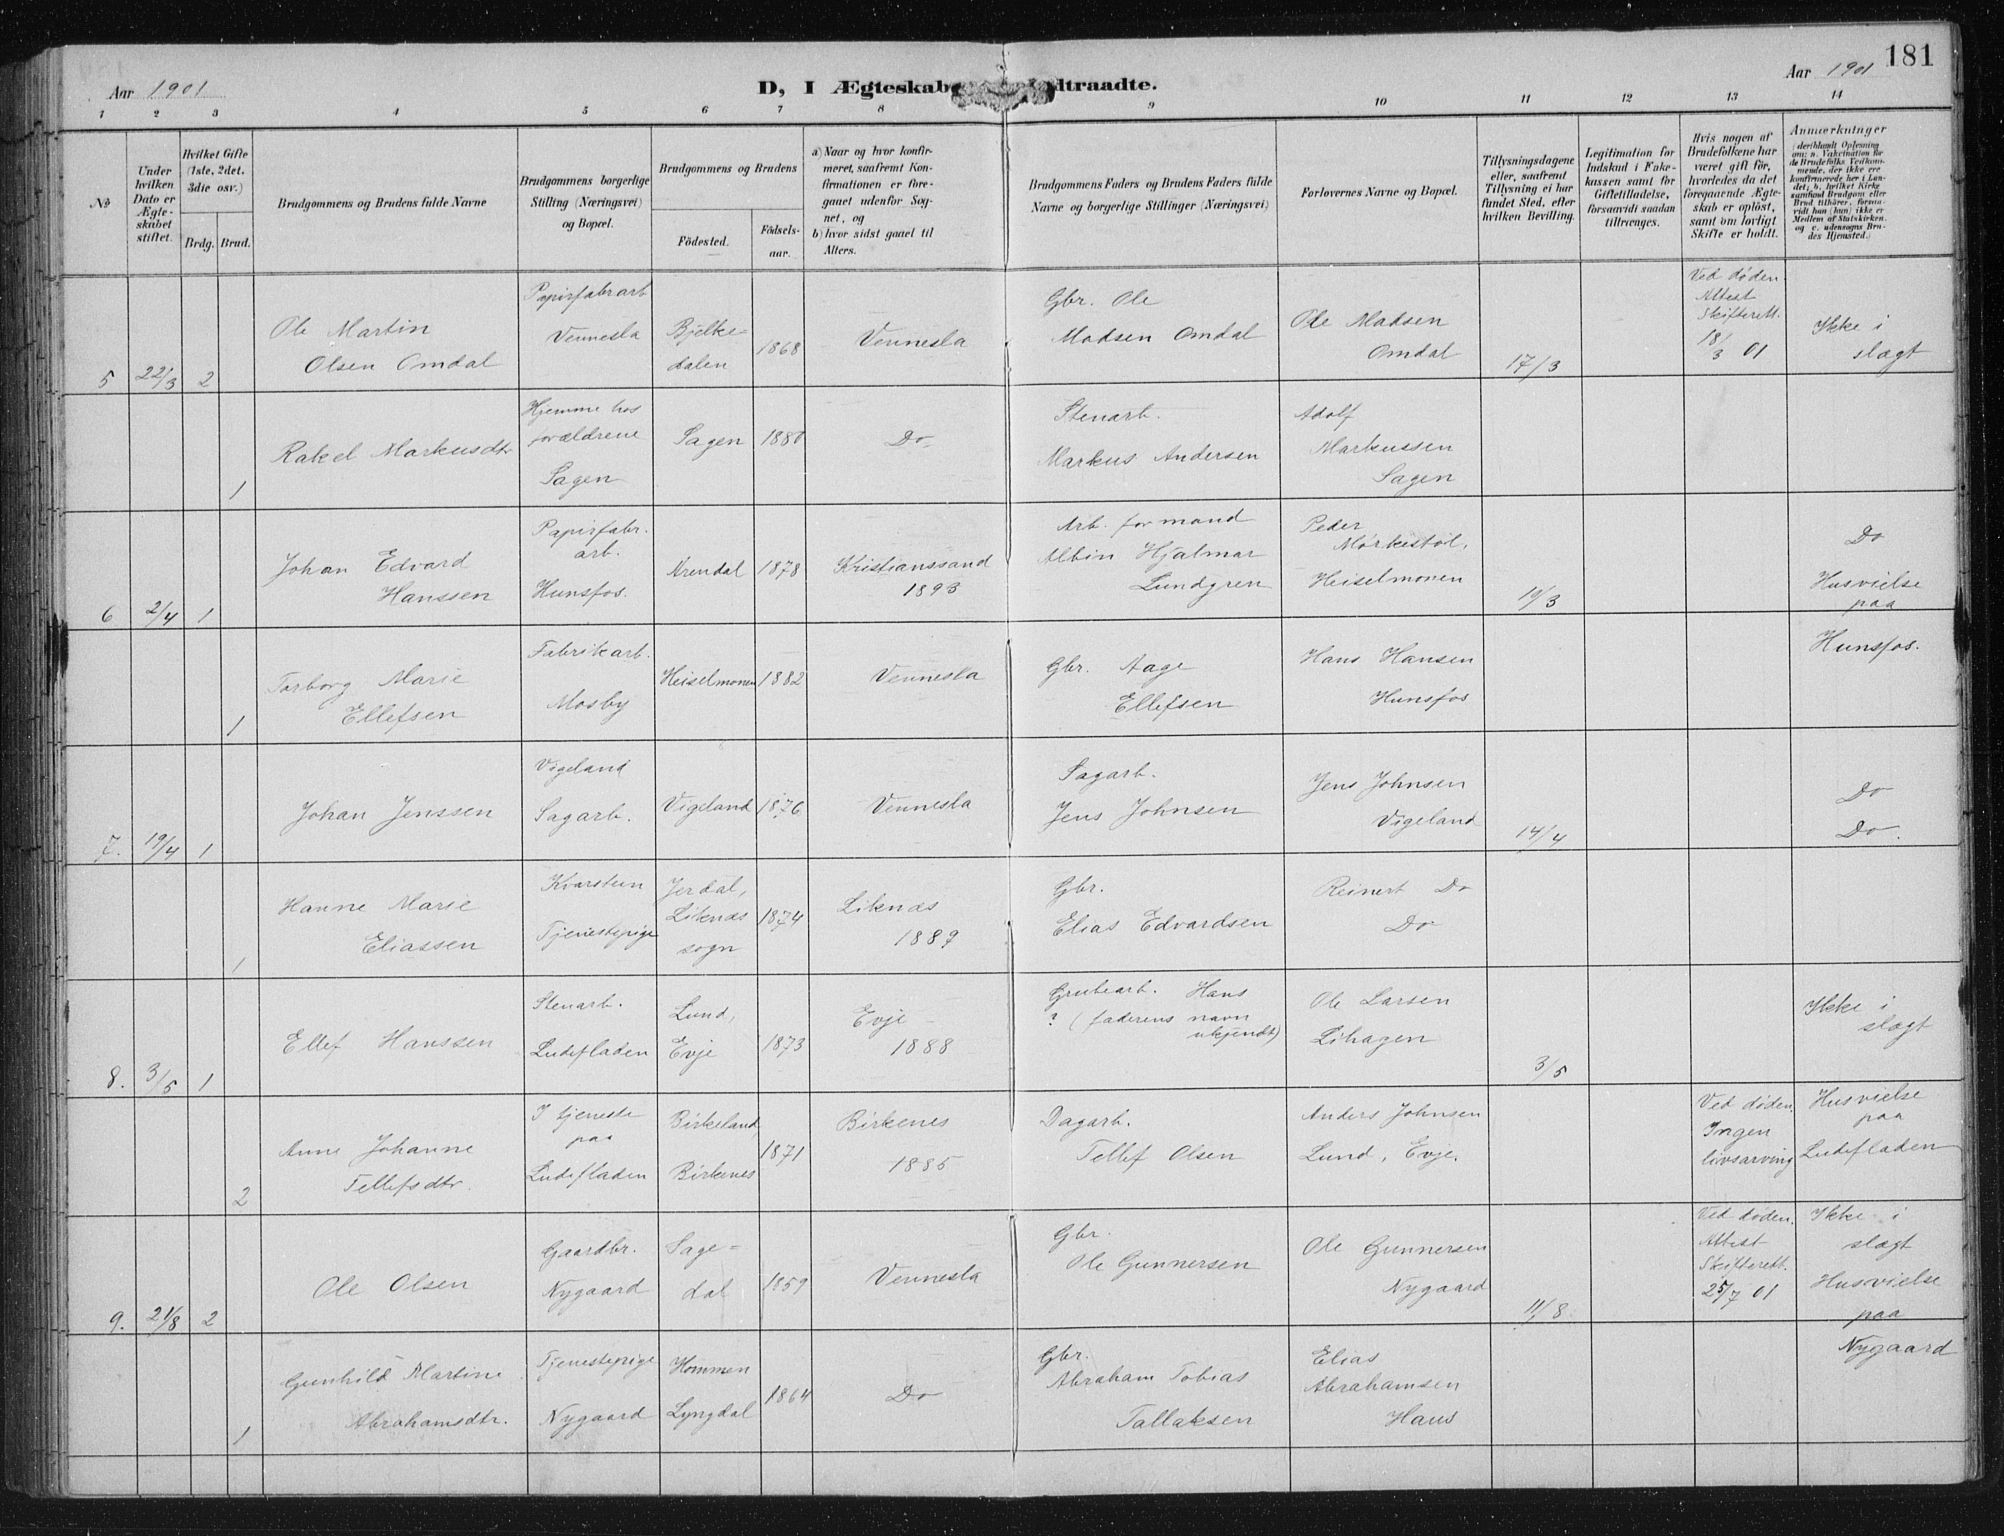 181
Aar 1901
D, I Ægteskab indtraadte.
Aar 1901
1 2 3 4 5 6 7 8 9 10 11 12 13 14
№
Under
hvilken
Dato er
Ægte-
skabet
stiftet.
Hvilket Gifte
(1ste, 2det,
3die osv.)
Brdg. Brud.
Brudgommens og Brudens fulde Navne
Brudgommens borgerlige
Stilling (Næringsvei)
og Bopæl.
Brudgommens og Brudens
Födested.
Födsels-
aar.
a) Naar og hvor konfir-
meret, saafremt Kon-
firmationen er fore-
gaaet udenfor Sog-
net, og
b) hvor sidst gaaet til
Alters.
Brudgommens Faders og Brudens Faders fulde
Navne og borgerlige Stillinger (Næringsvei)
Forlovernes Navne og Bopæl.
Tillysningsdagene
eller, saafremt
Tillysning ei har
fundet Sted, efter
hvilken Bevilling.
Legitimation for
Indskud i Enke-
kassen samt for
Giftetilladelse,
forsaavidt saadan
tiltrænges.
Hvis nogen af
Brudefolkene har
været gift för,
hvorledes da det
foregaaende Ægte-
skab er oplöst,
samt om lovligt
Skifte er holdt.
Anmærkninger
(deriblandt Oplysning
om: a. Vakcination for
de Brudefolks Vedkom-
mende, der ikke ere
konfirmerede her i Lan-
det; b. hvilket Kirke-
samfund Brudgom eller
Brud tilhörer, forsaa-
vidt han (hun) ikke er
Medlem af Statskirken,
og c. udensogns Bru-
des Hjemsted.)
5 22/3 2
Ole Martin
Olsen Omdal
Papirfabrarb
Vennesla
Bjelke-
dalen
1868
Vennesla
Gbr. Ole
Madsen Omdal
Ole Madsen
Omdal
17/3
Ved døden
Attest
Skifterett.
18/3 01
Ikke i
slægt
1
Rakel Markusdtr
Hjemme hos
forældrene
Sagen
Sagen
1880
Do
Stenarb.
Markus Andersen
Adolf
Markussen
Sagen
6 2/4 1
Johan Edvard
Hanssen
Papirfabr.
arb.
Hunsfos.
Arendal
1878
Kristianssand
1893
Arb. formand
Albin Hjalmar
Lundgren
Peder
Mørkestøl,
Heiselmonen
10/3
Do
Husvielse
paa
Hunsfos.
1
Torborg Marie
Ellefsen
Fabrikarb.
Mosby
Heiselmonen
1882
Vennesla
Gbr. Aage
Ellefsen
Hans Hansen
Hunsfos
7. 19/4 1
Johan Jenssen
Vigeland
Sagarb.
Vigeland
1876
Vennesla
Sagarb.
Jens Johnsen
Jens Johnsen
Vigeland
14/4
Do
Do.
1
Hanne Marie
Eliassen
Kvarstein
Tjenestepige
Jerdal,
Liknæs
sogn
1874
Liknæs
1889
Gbr.
Elias Edvardsen
Reinert Do
Do
8. 3/5 1
Ellef Hanssen
Stenarb.
Ludefladen
Lund,
Evje
1873
Evje
1888
Grubearb. Hans
? (faderens navn
ukjendt)
Ole Larsen
Lihagen
3/5
Ikke i
slægt
Husvielse
paa
Ludefladen
2
Anne Johanne
Tellefsdtr.
I tjeneste
paa
Ludefladen
Birkeland,
Birkenes
1871
Birkenes
1885
Dagarb.
Tellef Olsen
Anders Johnsen
Lund, Evje.
Ved døden.
Ingen
livsarving
9. 21/8 2
Ole Olsen
Gaardbr.
Nygaard
Sage-
dal
1859
Vennesla
Gbr.
Ole Gunnersen
Ole Gunnersen
Nygaard
11/8
Ved døden.
Attest
Skifterett.
25/7 01
Ikke i
slægt
Husvielse
paa
Nygaard
1
Gunhild Martine
Abrahamsdtr.
Tjenestepige
Nygaard
Hommen
Lyngdal
1864
Do
Gbr.
Abraham Tobias
Tallaksen
Elias
Abrahamsen
Haus